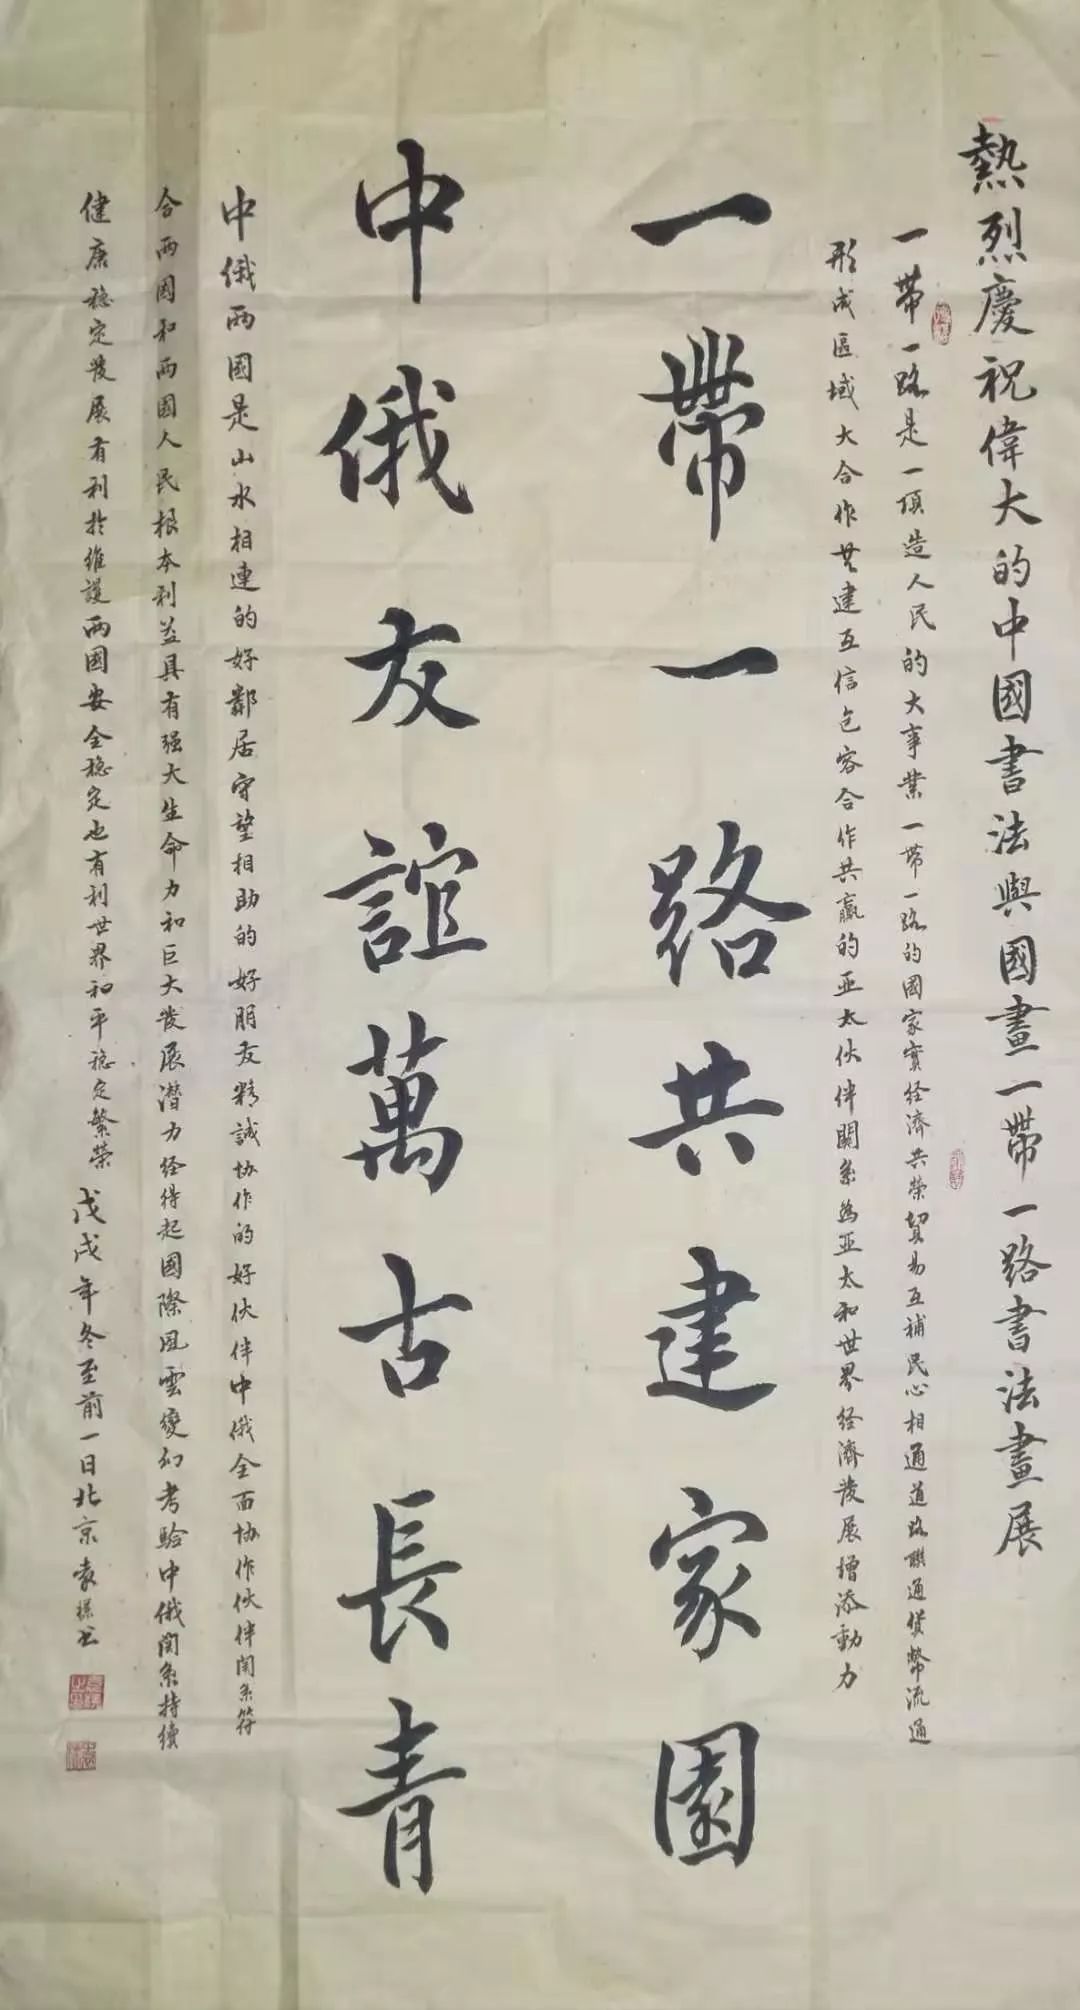 熱烈慶祝偉大的中國書法與國畫一帶一路書法畫展
一帶一路是一項造人民的大事業一帶一路的國家實經濟共榮貿易互補民心相通道路聯通貨幣流通
形成區域大合作共建互信包容合作共贏的亚太伙伴關系為亚太和世界经濟發展增添動力
一帶一路共建家園
中俄友誼萬古長青
中俄兩國是山水相連的好鄰居守望相助的好朋友精誠协作的好伙伴中俄全面协作伙伴関系符
合兩國和兩國人民根本利益具有强大生命力和巨大發展潜力经得起國際風雲變幻考驗中俄関系持續
健康稳定發展有利於維護兩國安全稳定也有利世界和平稳定繁榮 戊戌年冬至前一日北京袁 书